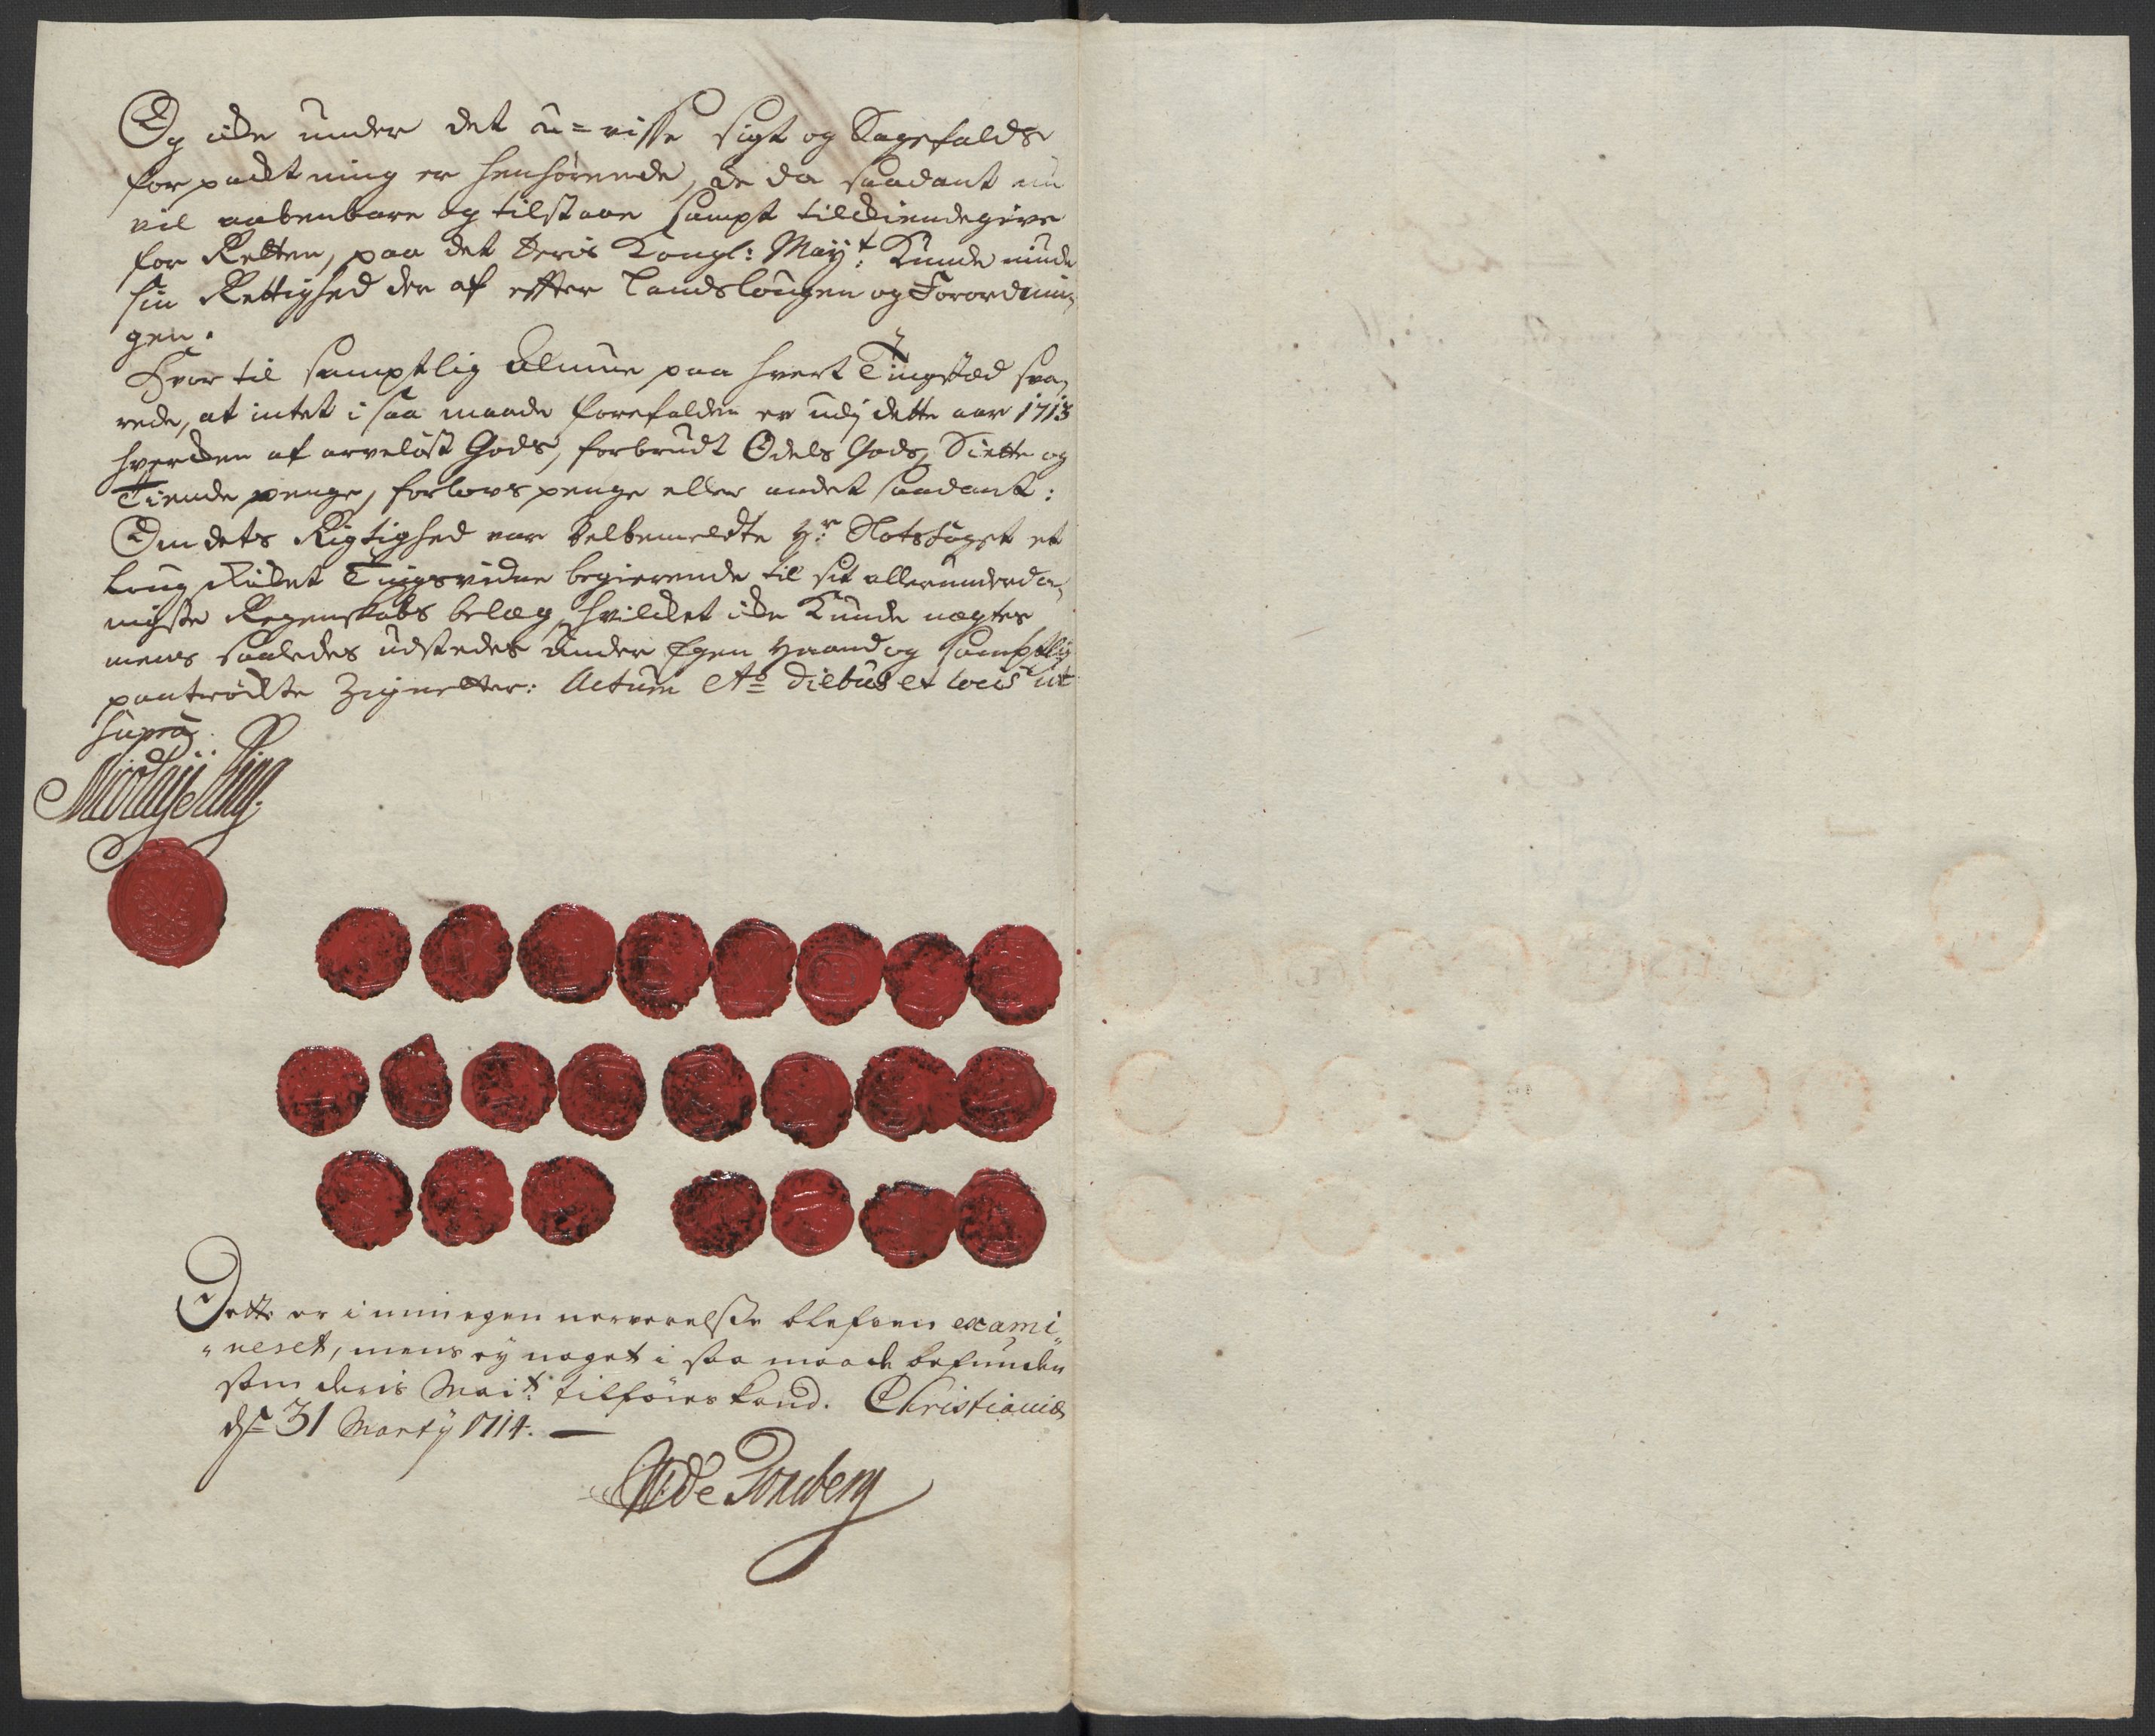 Og icke under det u=visse sigt og Sagefalds
forpacktning er henhørende, de da saadant nu
vil aabenbare og tilstaae sampt tilckiendegive
for Retten, paa det Deris Kongl: May:t Kunde niude
sin Rettighed der af effter Landslougen og Forordnin,
gen.
Hvor til samptlig Almue paa hvert Tingsted sva,
rede, at intet i saa maade forefalden er udj dette aar 1713
hvercken af arveløst Gods, forbrudt Odels Gods, Siette og
Tiende penge, forlovs penge eller andet saadant:
Om dets Rigtighed var Velbemeldte Hr: Slotsfoget et
lougskicket Tingsvidne begierende til sit allerunderda,
nigste Regenskabs belæg, hvilcket icke Kunde nægtes
mens saaledes udstedes under Egen Haand og samptlig
paatrøckte Zignetter: Actum Ao diebus et locis ut
supra.
Nicolaij Ring
Dette er i min egen nerverelsse blefven exami,,
,,neret, mens ey noget i saa maade befunden
som deris Mai:t tilføres kand. Christiania
dn 31 Marty 1714.
de Tonsberg